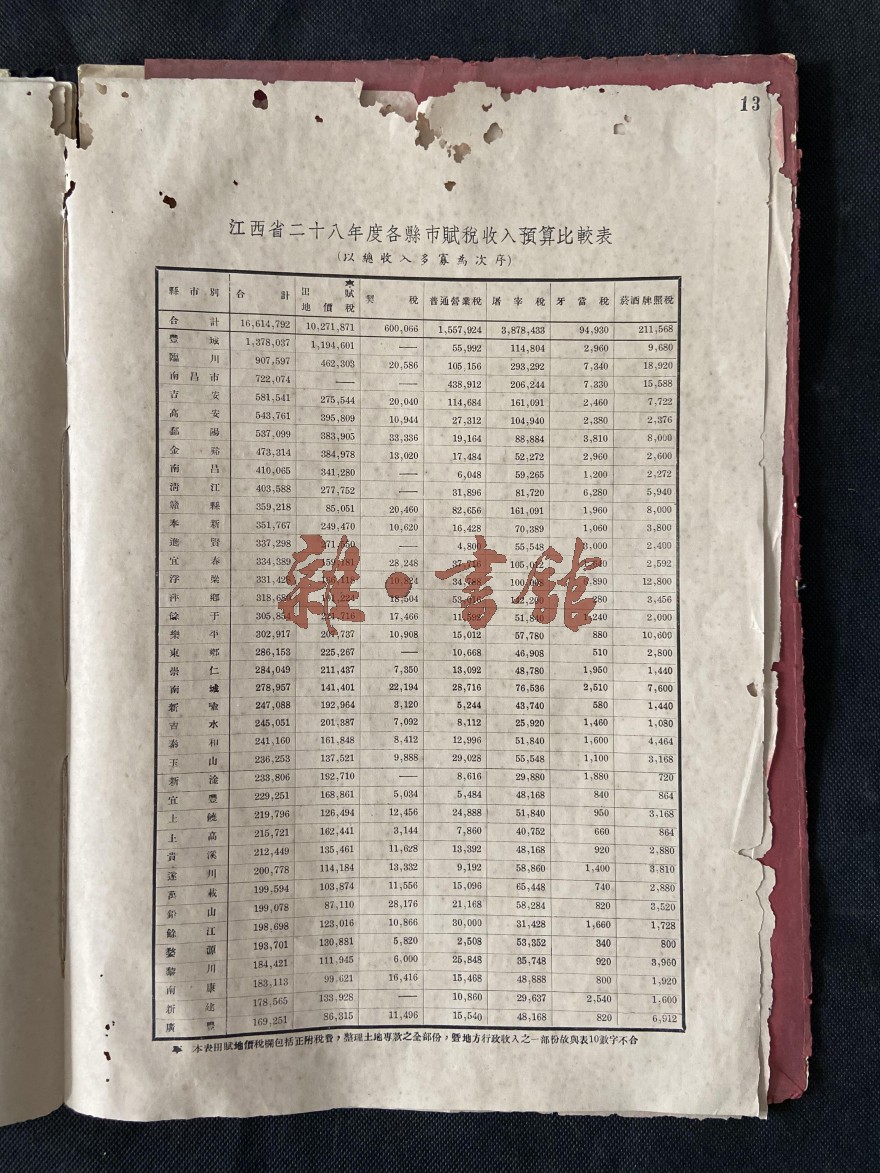 13
江西省二十八年度各縣市賦稅收入預算比較表
(以總收入多寡為次序)
縣市別 合計 田賦地價稅* 契稅 普通營業稅 屠宰稅 牙當稅 菸酒牌照稅
合計 16,614,792 10,271,871 600,066 1,557,924 3,878,433 94,930 211,568
豐城 1,378,037 1,194,601 —— 55,992 114,804 2,960 9,680
臨川 907,597 462,303 20,586 105,156 293,292 7,340 18,920
南昌市 722,074 —— —— 438,912 206,244 7,330 15,588
吉安 581,541 275,544 20,040 114,684 161,091 2,460 7,722
高安 543,761 395,809 10,944 27,312 104,940 2,380 2,376
鄱陽 537,099 383,905 33,336 19,164 88,884 3,810 8,000
金谿 473,314 384,978 13,020 17,484 52,272 2,960 2,600
南昌 410,065 341,280 —— 6,048 59,265 1,200 2,272
清江 403,588 277,752 —— 31,896 81,720 6,280 5,940
贛縣 359,218 85,051 20,460 82,656 161,091 1,960 8,000
奉新 351,767 249,470 10,620 16,428 70,389 1,060 3,800
進賢 337,298 271,550 —— 4,800 55,548 3,000 2,400
宜春 334,389 159,181 28,248 37,716 105,012 1,640 2,592
浮梁 331,428 166,118 10,824 34,788 100,008 6,890 12,800
萍鄉 318,680 101,224 18,504 53,016 142,200 280 3,456
餘干 305,854 221,716 17,466 11,592 51,840 1,240 2,000
樂平 302,917 207,737 10,908 15,012 57,780 880 10,600
東鄉 286,153 225,267 —— 10,668 46,908 510 2,800
崇仁 284,049 211,437 7,350 13,092 48,780 1,950 1,440
南城 278,957 141,401 22,194 28,716 76,536 2,510 7,600
新喻 247,088 192,964 3,120 5,244 43,740 580 1,440
吉水 245,051 201,387 7,092 8,112 25,920 1,460 1,080
泰和 241,160 161,848 8,412 12,996 51,840 1,600 4,464
玉山 236,253 137,521 9,888 29,028 55,548 1,100 3,168
新淦 233,806 192,710 —— 8,616 29,880 1,880 720
宜豐 229,251 168,861 5,034 5,484 48,168 840 864
上饒 219,796 126,494 12,456 24,888 51,840 950 3,168
上高 215,721 162,441 3,144 7,860 40,752 660 864
貴溪 212,449 135,461 11,628 13,392 48,168 920 2,880
遂川 200,778 114,184 13,332 9,192 58,860 1,400 3,810
萬載 199,594 103,874 11,556 15,096 65,448 740 2,880
鉛山 199,078 87,110 28,176 21,168 58,284 820 3,520
餘江 198,698 123,016 10,866 30,000 31,428 1,660 1,728
婺源 193,701 130,881 5,820 2,508 53,352 340 800
黎川 184,421 111,945 6,000 25,848 35,748 920 3,960
南康 183,113 99,621 16,416 15,468 48,888 800 1,920
新建 178,565 133,928 —— 10,860 29,637 2,540 1,600
廣豐 169,251 86,315 11,496 15,540 48,168 820 6,912
* 本表田賦地價稅欄包括正附稅費，整理土地專款之全部份，暨地方行政收入之一部份故與表10數字不合
雜·書館